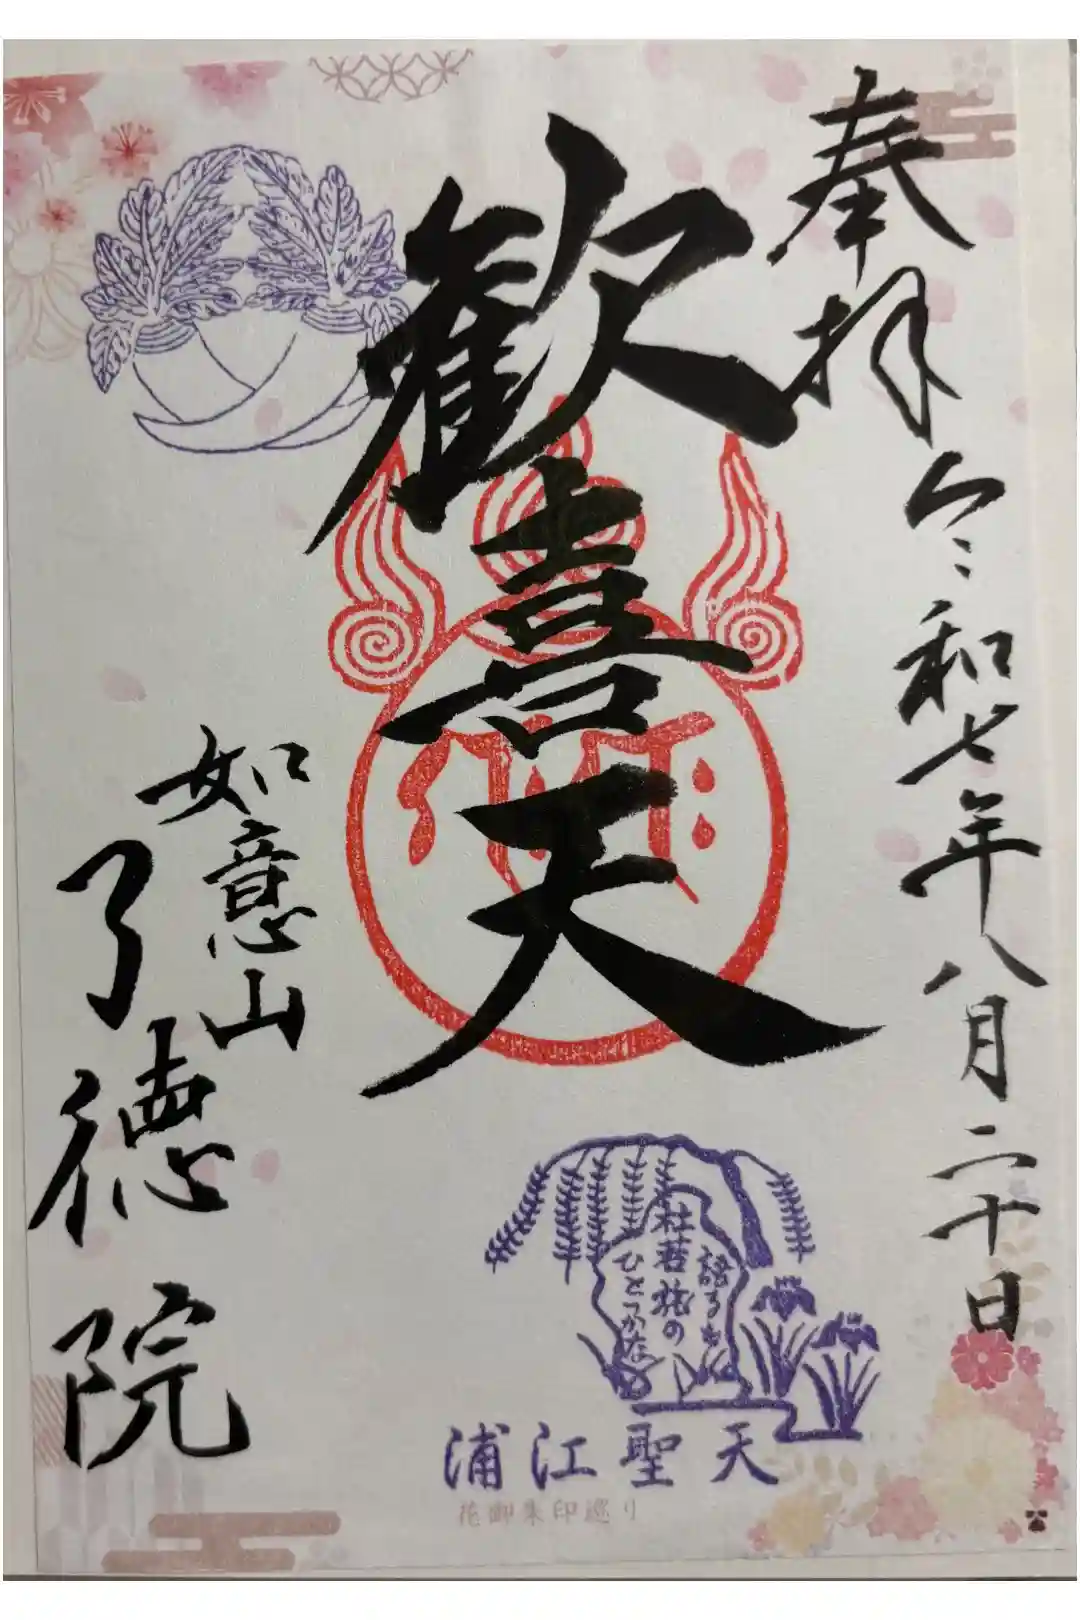 奉拝 令和七年八月二十日
歓喜天
如意山
了徳院
語るも
杜若 旅の
ひとつかな
浦江聖天
花御朱印巡り